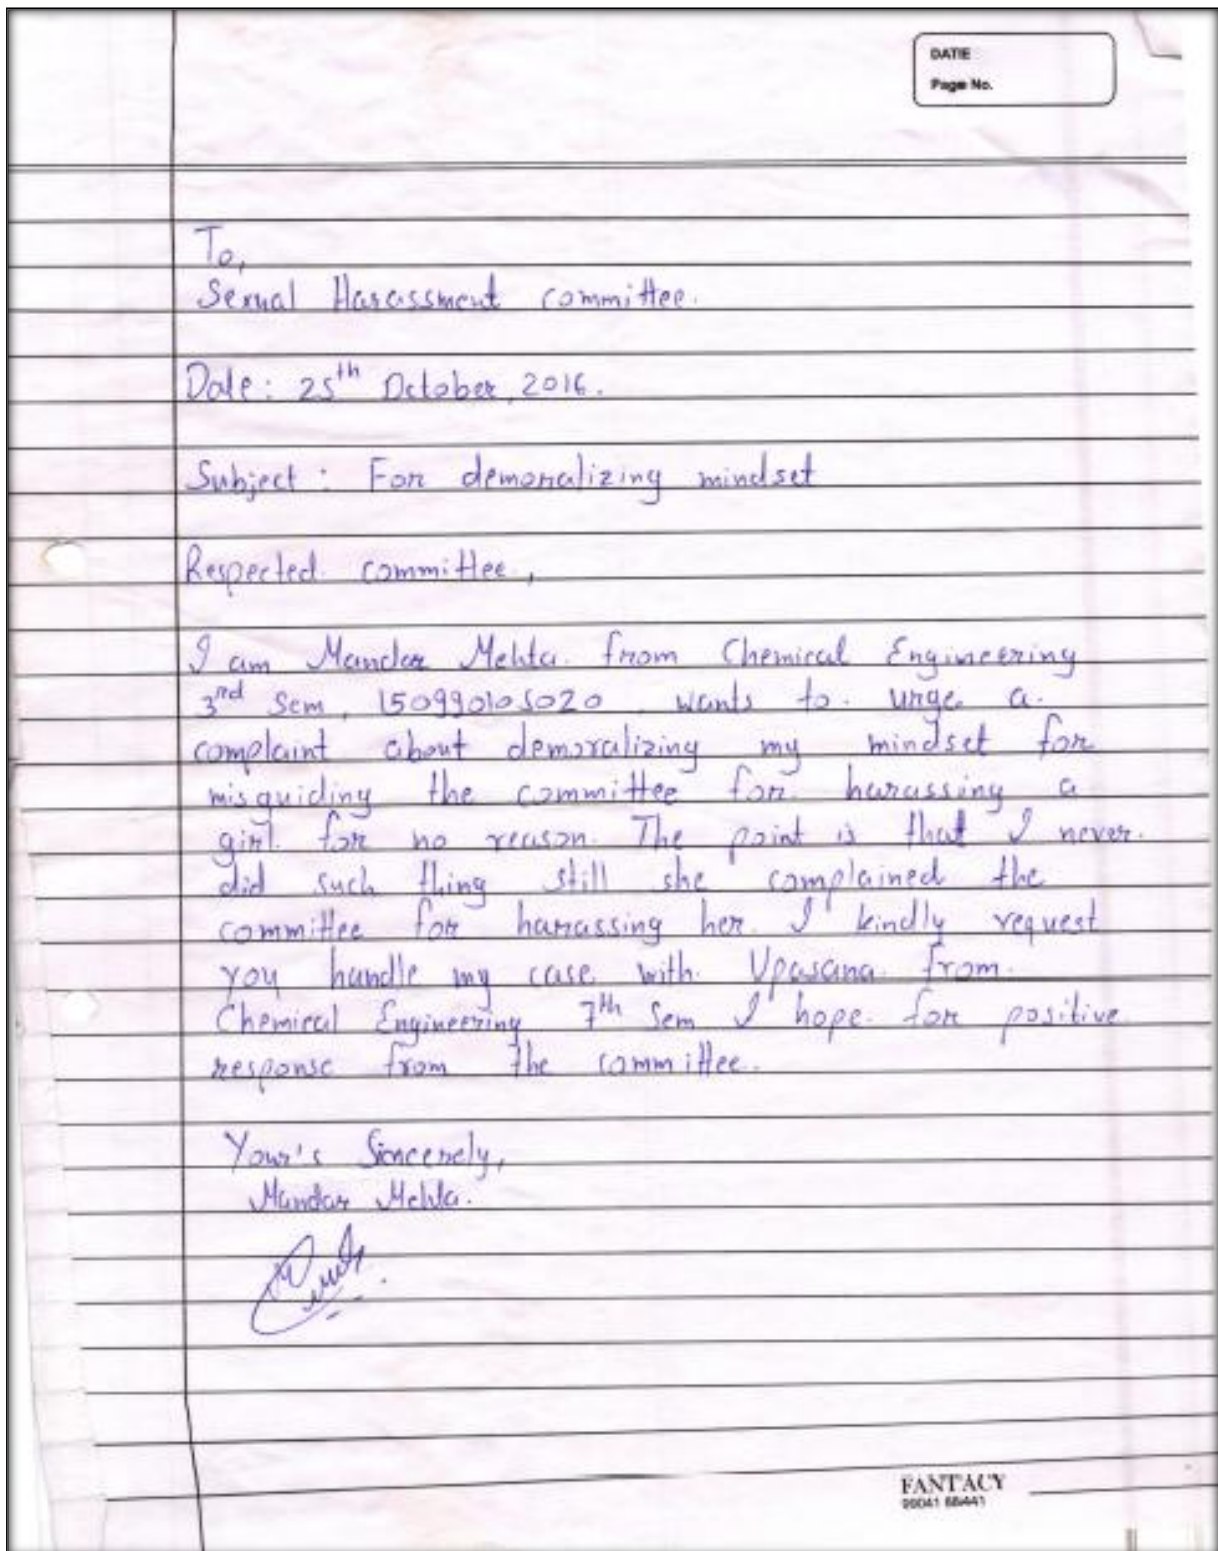 DATE
Page No.
To,
Sexual Harassment committee.
Date: 25th October, 2016.
Subject: For demoralizing mindset
Respected committee,
I am Mandar Mehta from Chemical Engineering
3rd Sem, 150990105020 wants to urge a
complaint about demoralizing my mindset for
misguiding the committee for harassing a
girl for no reason. The point is that I never
did such thing still she complained the
committee for harassing her. I kindly request
you handle my case with Upasana from
Chemical Engineering 7th Sem I hope for positive
response from the committee.
Your's Sincerely,
Mandar Mehta.
FANTACY